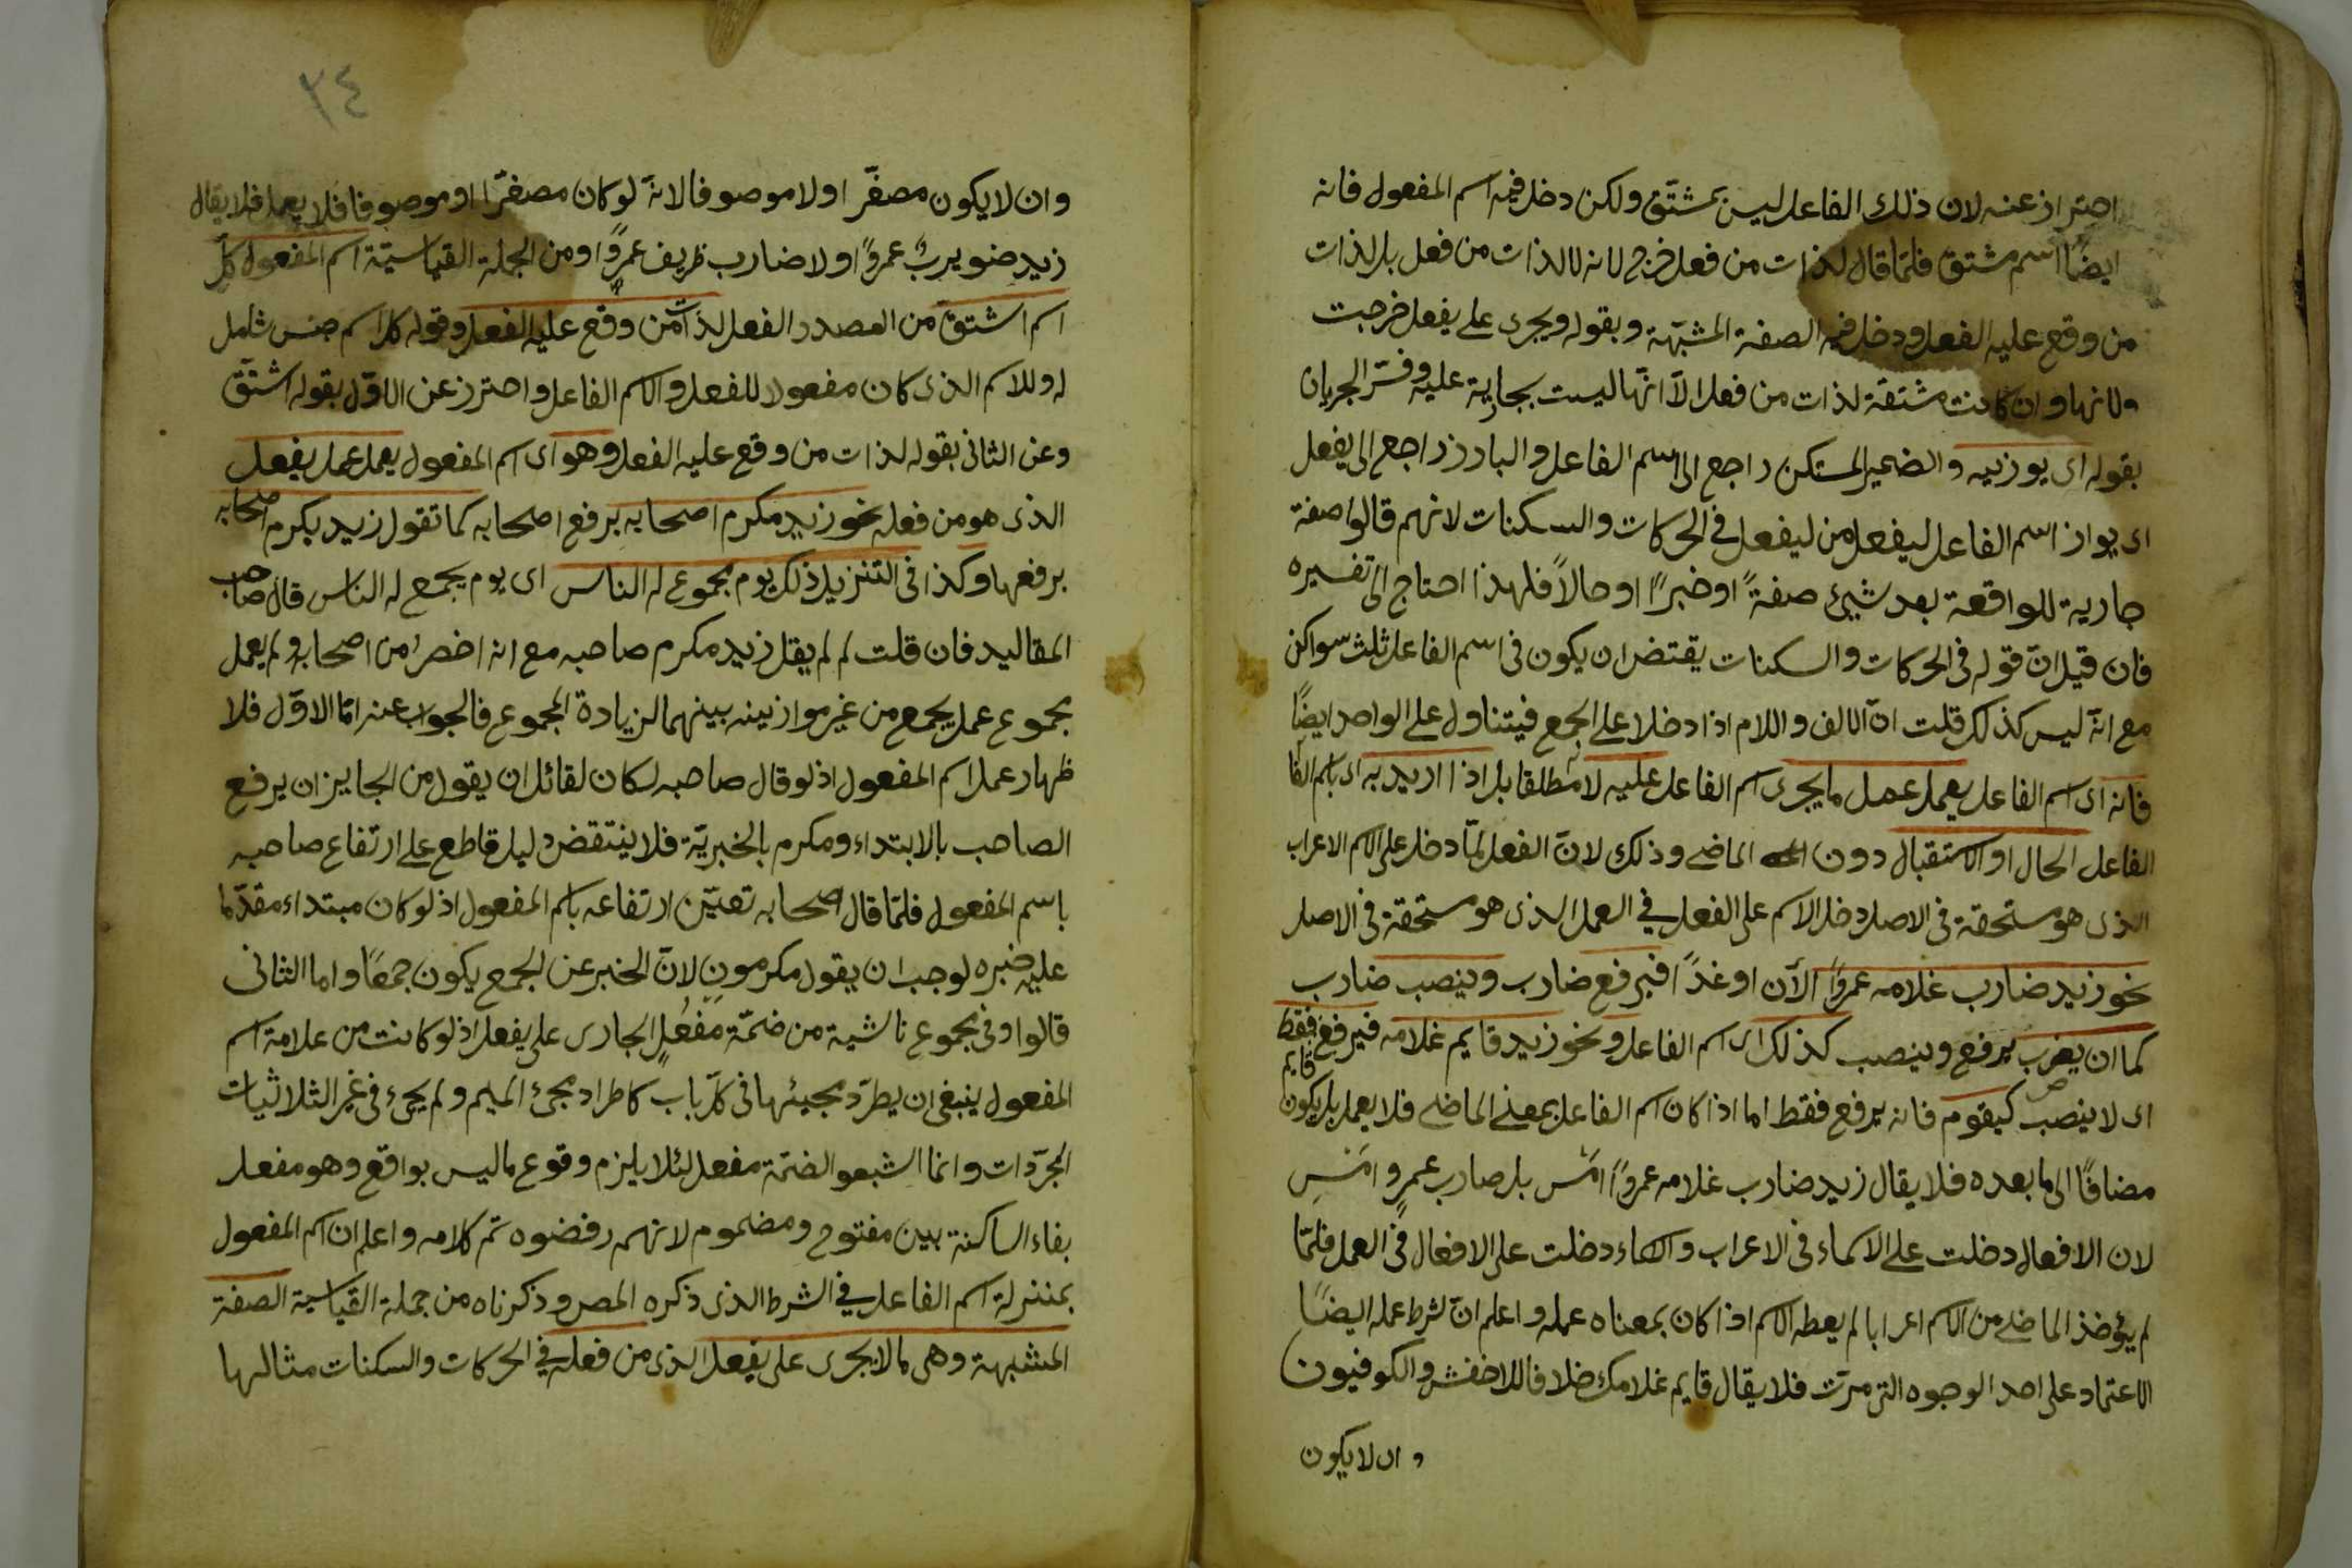 احتراز عنه لان ذلك الفاعل ليس بمشتق ولكن دخل فيه اسم المفعول فانه
ايضًا اسم مشتق فلمّا قال لذات من فعل خرج لانه لا لذات من فعل بل لذات
من وقع عليه الفعل ودخل فيه الصفة المشبّهة وبقوله ويجرى على يفعل خرجت
ولانها وان كانت مشتقة لذات من فعل الّا انّها ليست بجارية عليه وفسّر الجريان
بقوله اى يوزنيه والضمير المستكن راجع الى اسم الفاعل والبارز راجع الى يفعل
اى يوازن اسم الفاعل ليفعل من ليفعل فى الحركات والسكنات لانهم قالوا صفة
جارية للواقعة بعد شيئ صفةً او خبرًا او حالًا فلهذا احتاج الى تفسيره
فان قيل انّ قوله فى الحركات والسكنات يقتضى ان يكون فى اسم الفاعل ثلث سواكن
مع انّه ليس كذلك قلت انّ الالف واللام اذا دخلا على الجمع فيتناول على الواحد ايضًا
فانه اى اسم الفاعل يعمل عمل ما يجرى اسم الفاعل عليه لا مطلقا بل اذا اريد به اى باسم الفا
الفاعل الحال او الاستقبال دون الماضے وذلك لانّ الفعل لمّا دخل على الاسم الاعراب
الذى هو مستحقة فى الاصل دخل الاسم على الفعل فى العمل الذى هو مستحقة فى الاصل
نحو زيد ضارب غلامه عمروًا الآن او غدًا فيرفع ضارب وينصب ضارب
كما ان يضرب يرفع وينصب كذلك اى اسم الفاعل ونحو زيد قايم غلامه فيرفع فقط قايم
اى لا ينصب كيقوم فانه يرفع فقط اما اذا كان اسم الفاعل بمعنى الماضے فلا يعمل بل يكون
مضافًا الى ما بعده فلا يقال زيد ضارب غلامه عمروًا امس بل ضارب عمرٍو امسِ
لان الافعال دخلت على الاسماء فى الاعراب والاسماء دخلت على الافعال فى العمل فلمّا
لم يؤخذ الماضے من الاسم اعرابا لم يعطه الاسم اذا كان بمعناه عمله واعلم انّ لشرط عمله ايضًا
الاعتماد على احد الوجوه التى مرّت فلا يقال قايم غلامك خلافا للاخفش والكوفيون
وان لا يكون
٣٤
وان لا يكون مصغّرا ولا موصوفا لانّه لو كان مصغّرا او موصوفا فلا يعمل فلا يقال
زيد ضويربٌ عمروًا ولا ضارب ظريف عمروًا ومن الجملة القياسيّة اسم المفعول كلّ
اسم اشتق من المصدر الفعل لذات من وقع عليه الفعل وقوله كل اسم جنس شامل
له وللاسم الذى كان مفعولا للفعل والاسم الفاعل واحترز عن الاوّل بقوله اشتقّ
وعن الثانى بقوله لذات من وقع عليه الفعل وهو اى اسم المفعول يعمل عمل يفعل
الذى هو من فعله نحو زيد مكرم اصحابه برفع اصحابه كما تقول زيد يكرم اصحابه
برفعها وكذا فى التنزيل ذلك يوم مجموع له الناس اى يوم يجمع له الناس قال صاحب
المقاليد فان قلت لم لم يقل زيد مكرم صاحبه مع انه اخصر من اصحابه ولم يعمل
مجموع عمل يجمع من غير موازينه بينهما لزيادة المجموع فالجواب عنه امّا الاوّل فلا
ظهار عمل اسم المفعول اذ لو قال صاحبه لكان لقائل ان يقول من الجايز ان يرفع
الصاحب بالابتداء ومكرم بالخبريّة فلا ينتقض دليل قاطع على ارتفاع صاحبه
باسم المفعول فلمّا قال اصحابه تعيّن ارتفاعه باسم المفعول اذ لو كان مبتداء مقدّما
عليه خبره لوجب ان يقول مكرمون لانّ الخبر عن الجمع يكون جمعًا واما الثانى
قالوا وفى مجموع ناشية من ضمّة مفعُل الجارى على يفعل اذ لو كانت من علامة اسم
المفعول ينبغى ان يطرّد مجيئها فى كلّ باب كاطراد مجئ الميم ولم يجئ فى غير الثلاثيات
المجرّدات وانما اشبعوا الضمّة مفعل لئلا يلزم وقوع ما ليس بواقع وهو مفعل
بفاء الساكنة بين مفتوح ومضموم لانهم رفضوه تم كلامه واعلم ان اسم المفعول
بمنزلة اسم الفاعل فى الشرط الذى ذكره المص وذكرناه من جملة القياسية الصفة
المشبهة وهى ما لا يجرى على يفعل الذى من فعله فى الحركات والسكنات مثالها